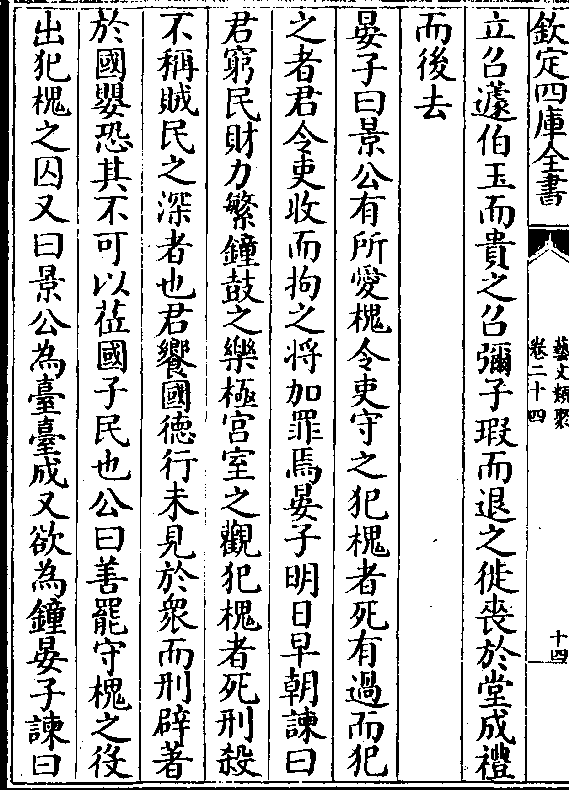 欽定四庫全書
藝文類聚
卷二十四
十四
立召蘧伯玉而貴之召彌子瑕而退之徙喪於堂成禮
而後去
晏子曰景公有所愛槐令吏守之犯槐者死有過而犯
之者君令吏收而拘之将加罪焉晏子明日早朝諫曰
君窮民財力繁鐘鼓之樂極宫室之觀犯槐者死刑殺
不稱賊民之深者也君饗國徳行未見於衆而刑辟著
於國嬰恐其不可以莅國子民也公曰善罷守槐之役
出犯槐之囚又曰景公為臺臺成又欲為鐘晏子諫曰